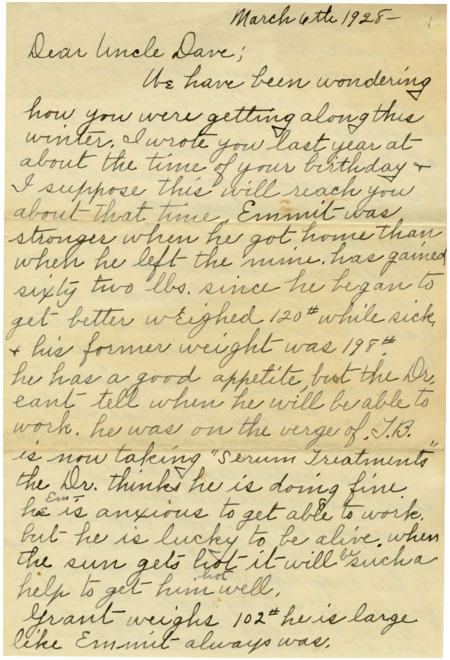 March 6th 1928-
Dear Uncle Dave;
We have been wondering
how you were getting along this
winter. I wrote you last year at
about the time of your birthday &
I suppose this will reach you
about that time. Emmit was
stronger when he got home than
when he left the mine. has gained
sixty two lbs. since he began to
get better wEighed 120# while sick.
& his former weight was 198#
he has a good appetite, but the Dr.
cant tell when he will be able to
work. he was on the verge of. T.B.
is now taking "Serum Treatments"
the Dr. thinks he is doing fine.
Em-
he is anxious to get able to work.
but he is lucky to be alive. when
the sun gets hot it will be such a
help to get him well.
Grant weighs 102# he is large
like Emmit always was.